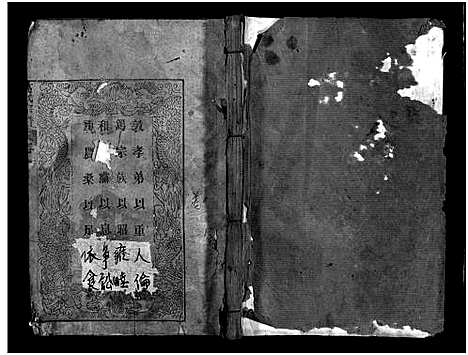 敦孝弟以重人倫
篤宗族以昭雍睦
和黨以息爭訟
重農桑以足衣食